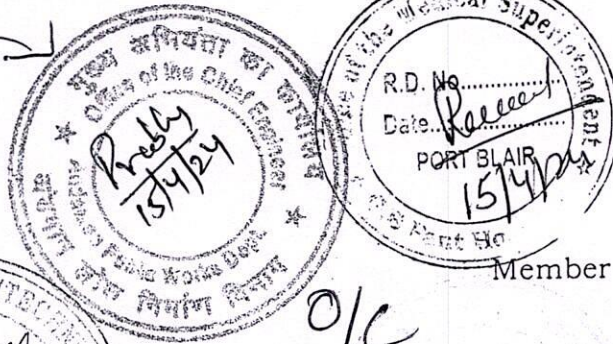 मुख्य अभियंता का कार्यालय
Office of the Chief Engineer
15/4/24
Public Works Dept.
लोक निर्माण विभाग
of the Medical Superintendent
R.D. No..................
Date
PORT BLAIR
15/4/24
G B Pant Ho
Member
O/C